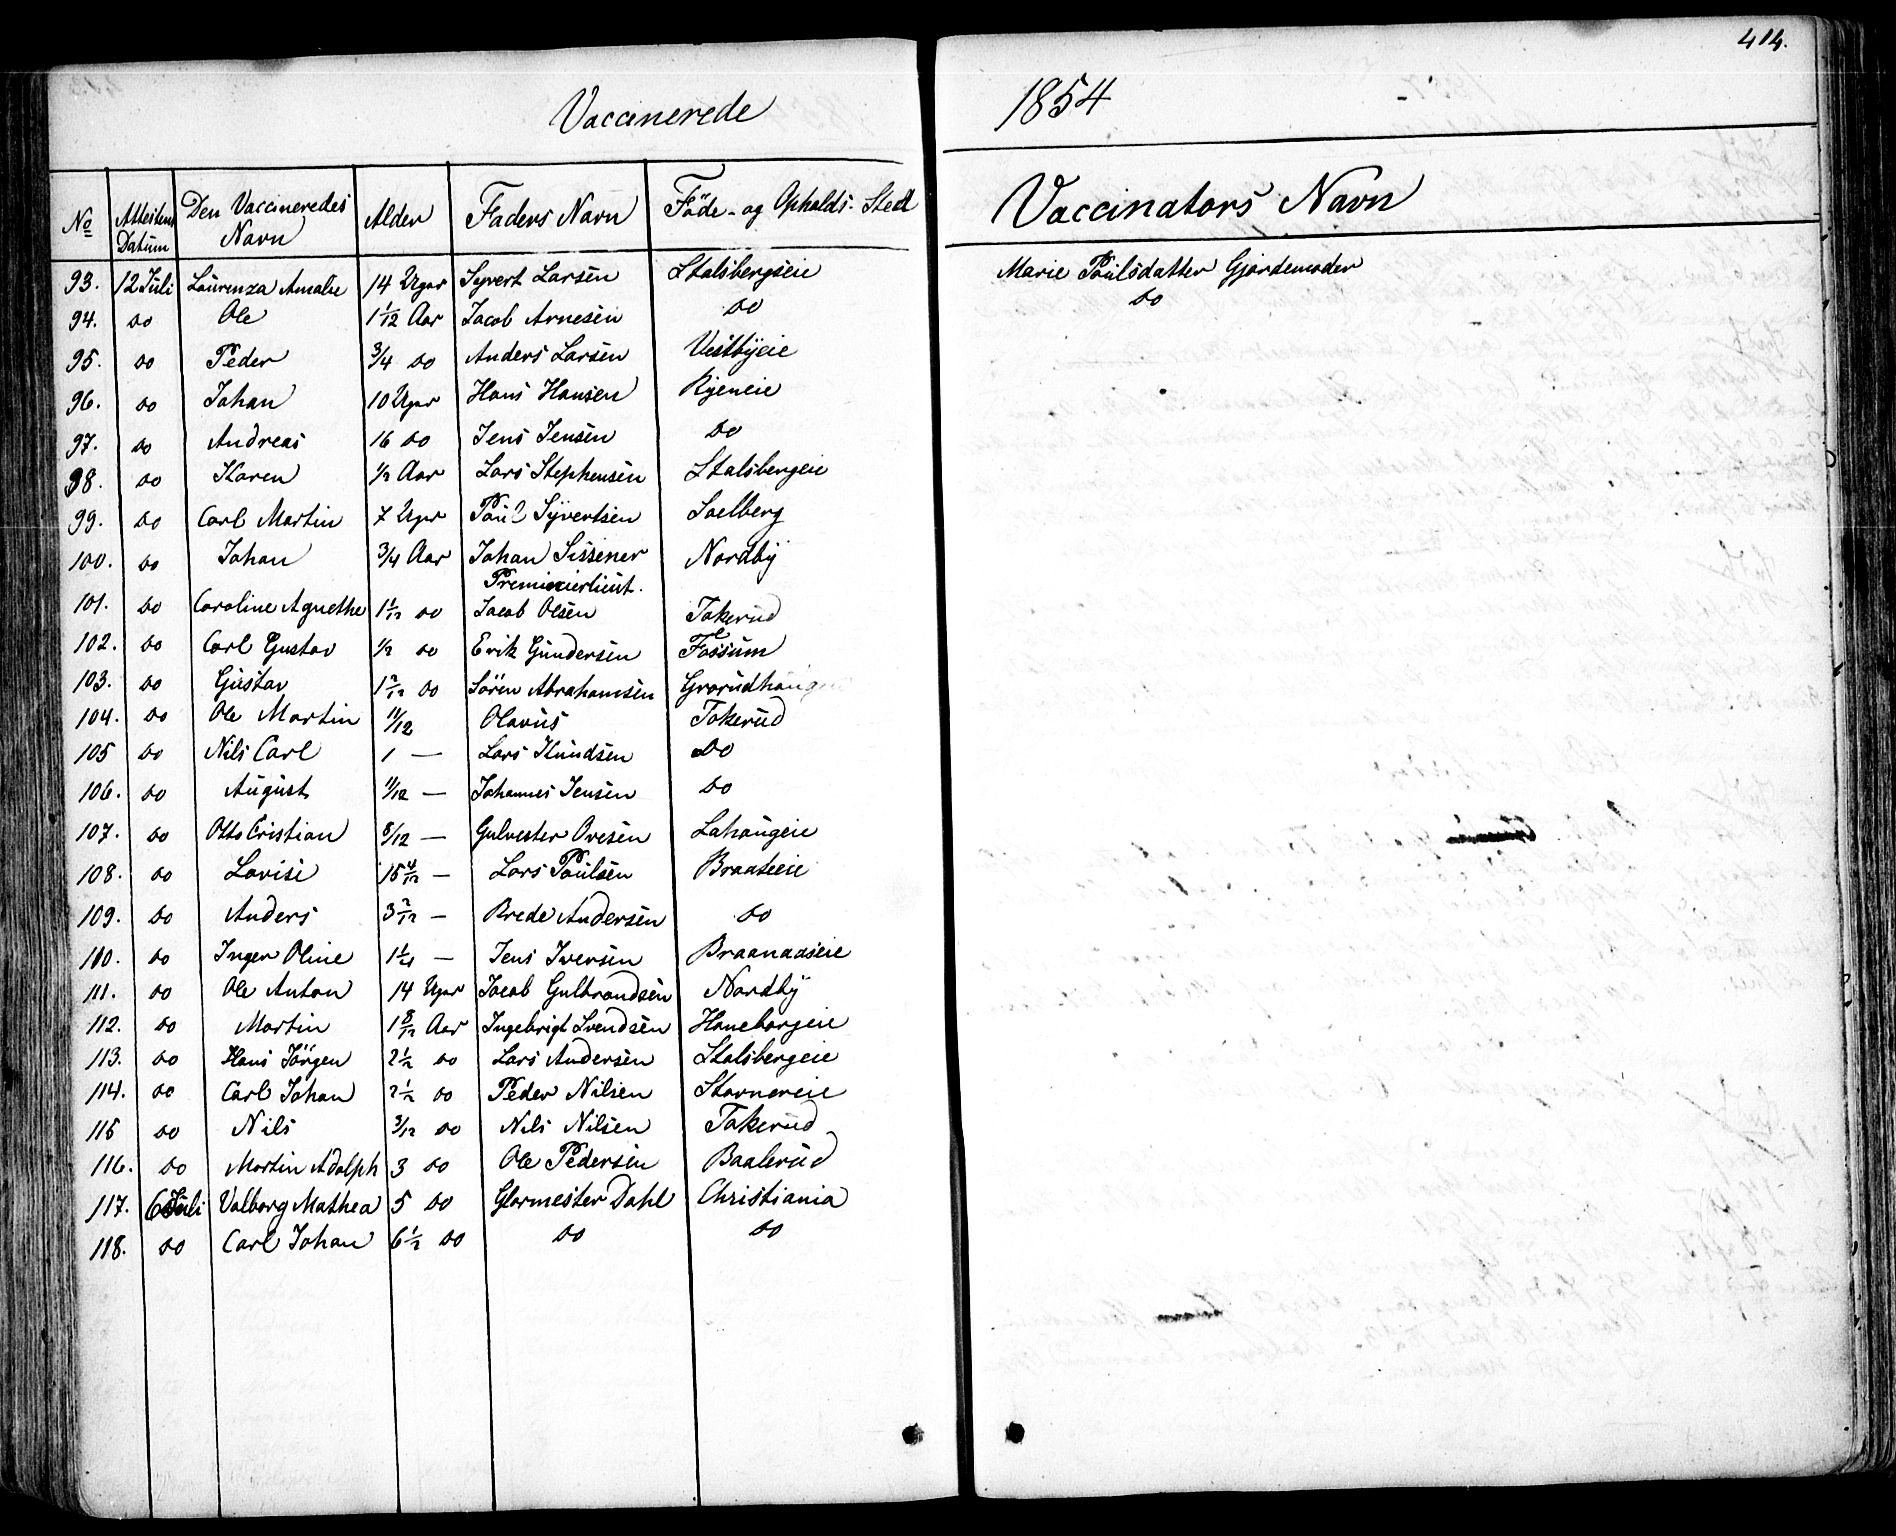 414.
Vaccinerede 1854
No Attestens Datum Den Vaccineredes Navn Alder Faders Navn Föde- og Opholds- Sted Vaccinators Navn
93. 12 Juli Laurenza Amalie 14 Uger Syvert Larsen Stalsbergseie Marie Poulsdatter Gjordemoder
94. do Ole 1 1/12 Aar Jacob Arnesen do do
95. do Peder 3/4 do Anders Larsen Vestbyeie
96. do Johan 10 Uger Hans Hansen Ryeneie
97. do Andreas 16 do Jens Jensen do
98. do Karen 1/2 Aar Lars Stephensen Stalsbergeie
99. do Carl Martin 7 Uger Poul Syvertsen Soelberg
100. do Johan 3/4 Aar Johan Sissener Nordby
Premierlieut.
101. do Caroline Agnethe 1 1/12 do Jacob Olsen Tokerud
102. do Carl Gustav 1/2 do Erik Gundersen Fossum
103. do Gustav 1 2/12 do Sören Abrahamsen Grorudhaugen
104. do Ole Martin 11/12 Olavus Tokerud
105 do Nils Carl 1 — Lars Knudsen do
106. do August 11/12 — Johannes Jensen do
107. do Otto Cristian 8/12 — Gulvester Ovesen Lahaugeie
108. do Lovise 15 4/12 — Lars Poulsen Braateeie
109. do Anders 3 2/12 — Brede Andersen do
110. do Inger Oline 1 1/4 — Jens Iversen Braanaaseie
111. do Ole Anton 14 Uger Jacob Gulbrandsen Nordby
112. do Martin 1 8/12 Aar Ingebrigt Svendsen Haneborgeie
113. do Hans Jörgen 2 1/2 do Lars Andersen Stalsbergeie
114. do Carl Johan 2 1/2 do Peder Nilsen Stovnereie
115 do Nils 3/12 do Nils Nilsen Tokerud
116. do Martin Adolph 3 do Ole Pedersen Baalerud
117. 6 Juli Valborg Mathea 5 do Glarmester Dahl Christiania
118. do Carl Johan 6 1/2 do do do